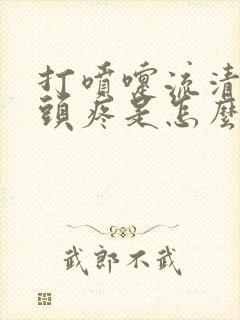 打噴嚏流清
頭疼是怎麼
武郎不武